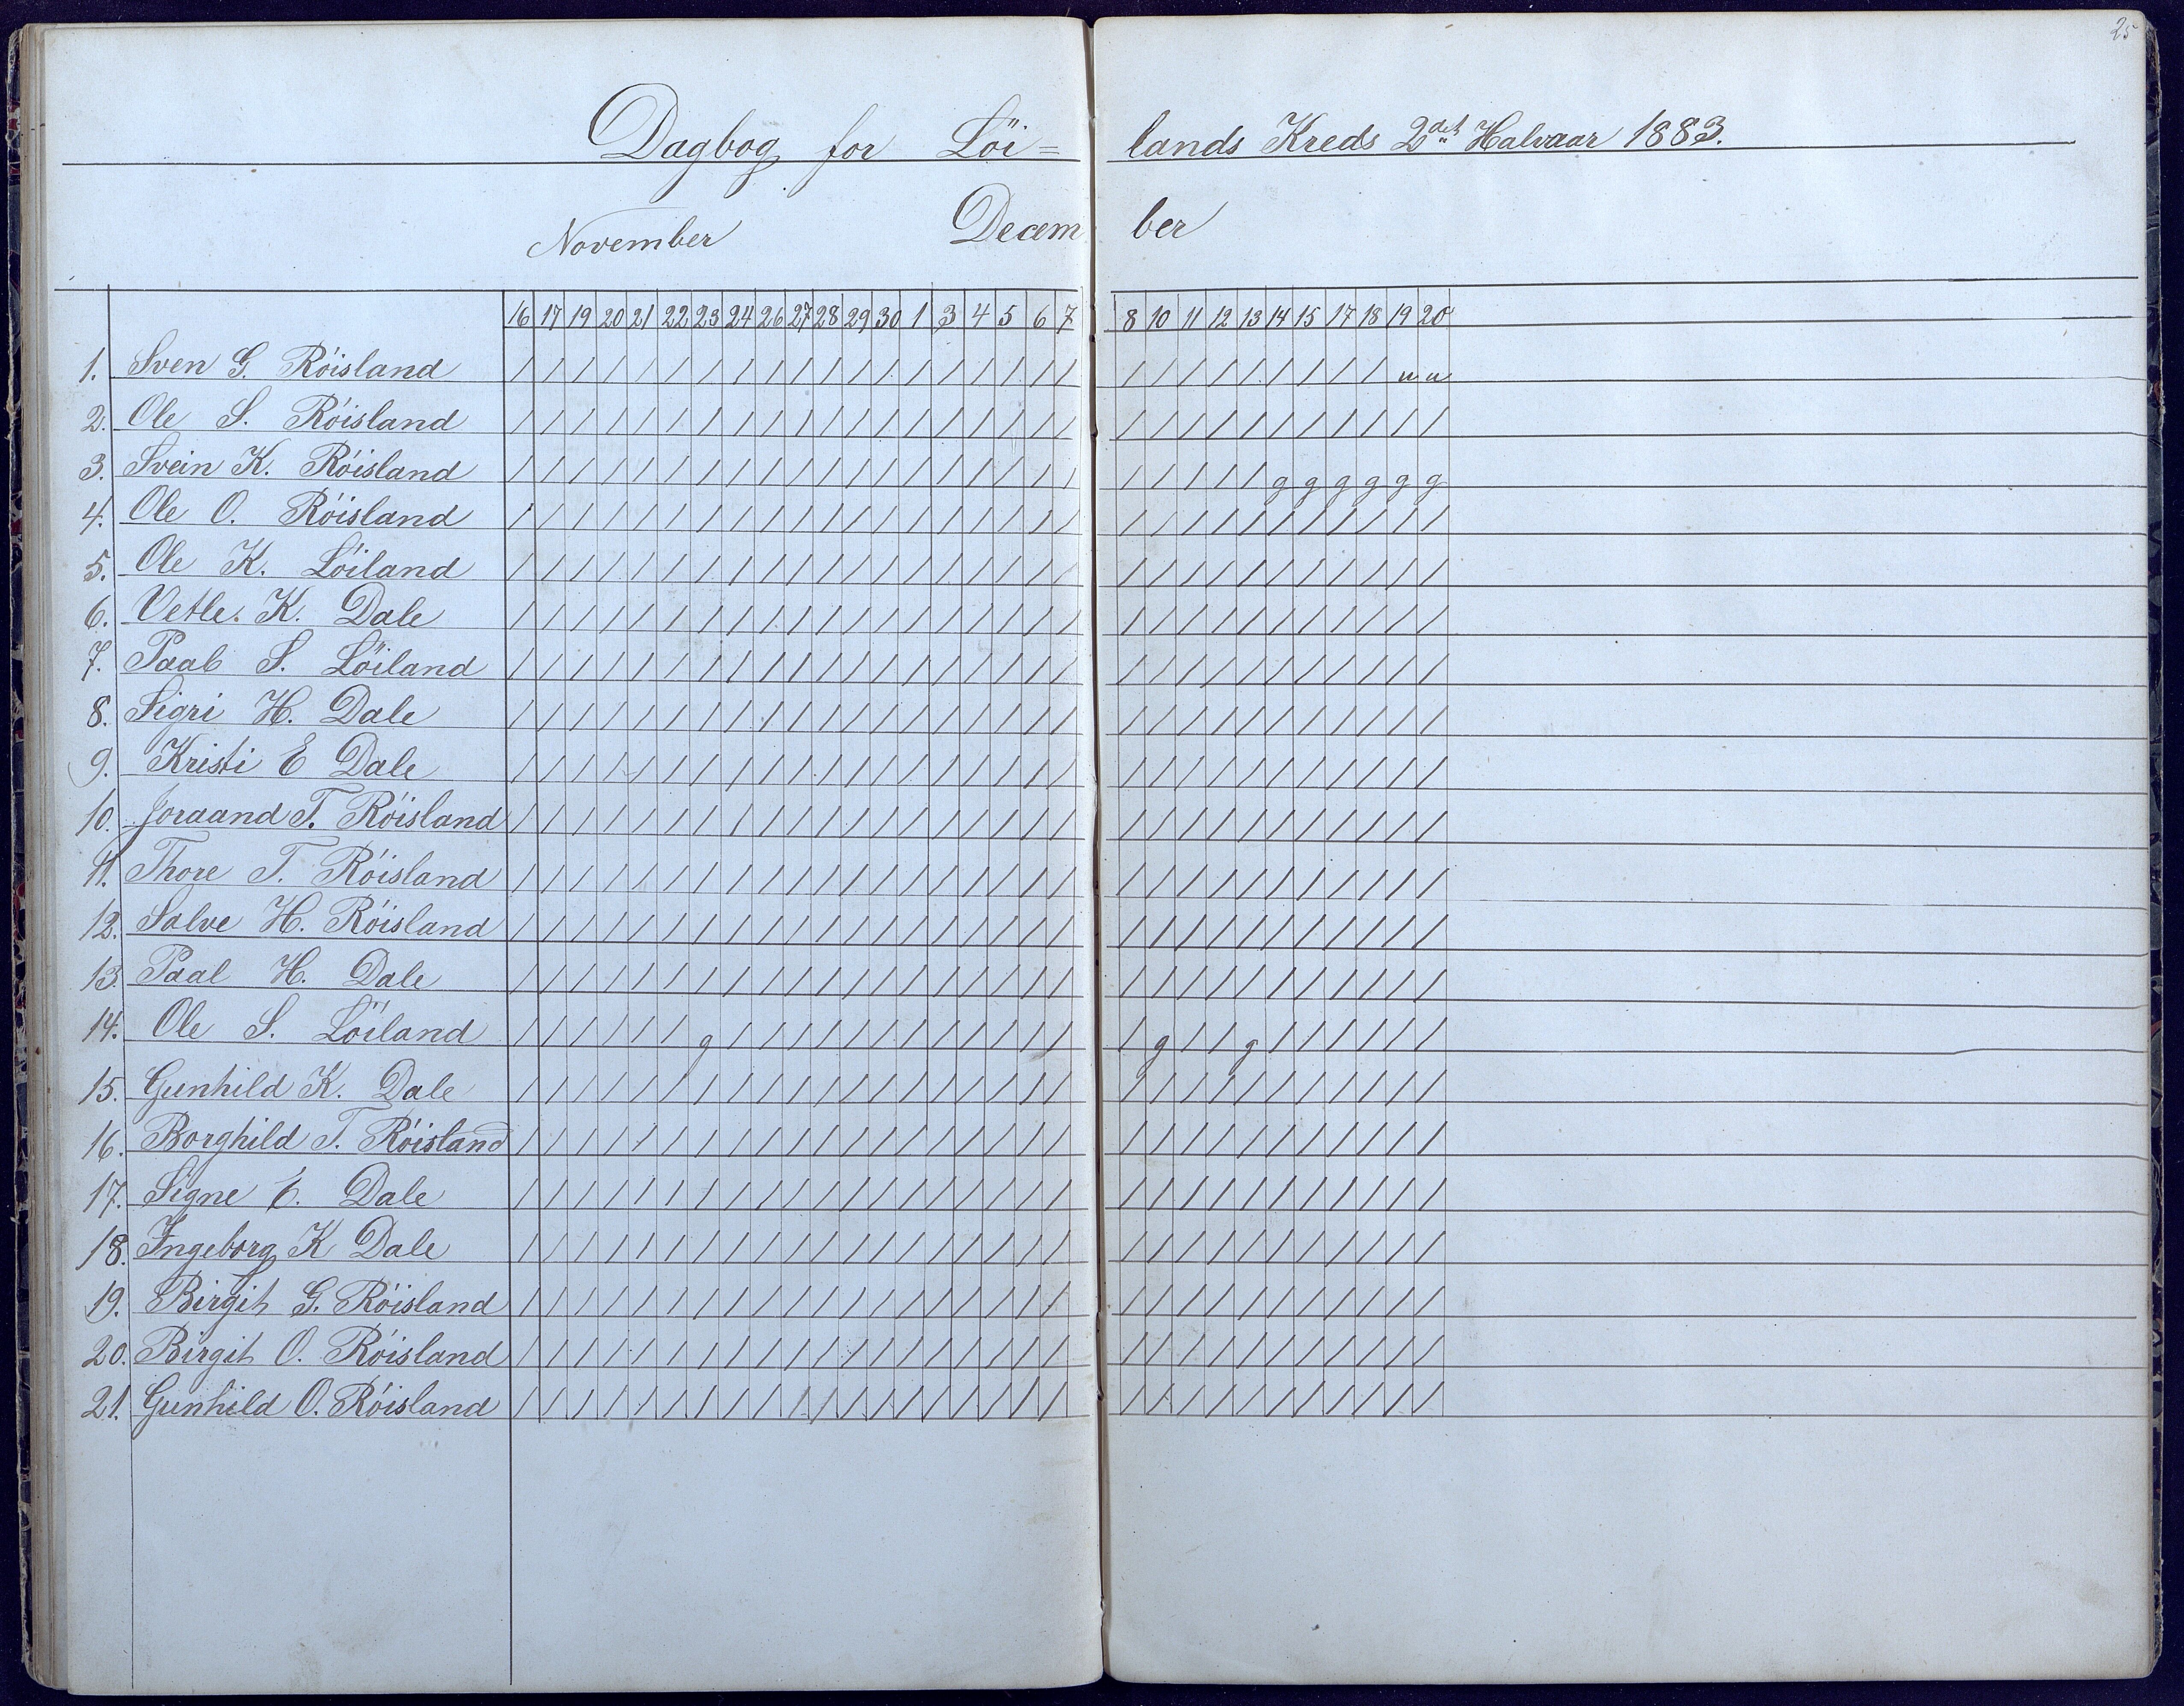 25
Dagbog for Löi= lands Kreds 2det Halvaar 1883.
November Decem ber
16 17 19 20 21 22 23 24 26 27 28 29 30 1 3 4 5 6 7 8 10 11 12 13 14 15 17 18 19 20
1. Sven G. Röisland / / / / / / / / / / / / / / / / / / / / / / / / / / / / u u
2. Ole S. Röisland / / / / / / / / / / / / / / / / / / / / / / / / / / / / / /
3. Svein K. Röisland / / / / / / / / / / / / / / / / / / / / / / / / g g g g g g
4. Ole O. Röisland / / / / / / / / / / / / / / / / / / / / / / / / / / / / / /
5. Ole K. Löiland / / / / / / / / / / / / / / / / / / / / / / / / / / / / / /
6. Vetle. K. Dale / / / / / / / / / / / / / / / / / / / / / / / / / / / / / /
7. Paal S. Löiland / / / / / / / / / / / / / / / / / / / / / / / / / / / / / /
8. Sigri H. Dale / / / / / / / / / / / / / / / / / / / / / / / / / / / / / /
9. Kristi E Dale / / / / / / / / / / / / / / / / / / / / / / / / / / / / / /
10. Joraand T. Röisland / / / / / / / / / / / / / / / / / / / / / / / / / / / / / /
11. Thore T. Röisland / / / / / / / / / / / / / / / / / / / / / / / / / / / / / /
12. Salve H. Röisland / / / / / / / / / / / / / / / / / / / / / / / / / / / / / /
13. Paal H. Dale / / / / / / / / / / / / / / / / / / / / / / / / / / / / / /
14. Ole S. Löiland / / / / / / g / / / / / / / / / / / / / g / / g / / / / / /
15. Gunhild K. Dale / / / / / / / / / / / / / / / / / / / / / / / / / / / / / /
16. Borghild T. Röisland / / / / / / / / / / / / / / / / / / / / / / / / / / / / / /
17. Signe E. Dale / / / / / / / / / / / / / / / / / / / / / / / / / / / / / /
18. Ingeborg K Dale / / / / / / / / / / / / / / / / / / / / / / / / / / / / / /
19. Birgit G. Röisland / / / / / / / / / / / / / / / / / / / / / / / / / / / / / /
20. Birgit O. Röisland / / / / / / / / / / / / / / / / / / / / / / / / / / / / / /
21. Gunhild O. Röisland / / / / / / / / / / / / / / / / / / / / / / / / / / / / / /